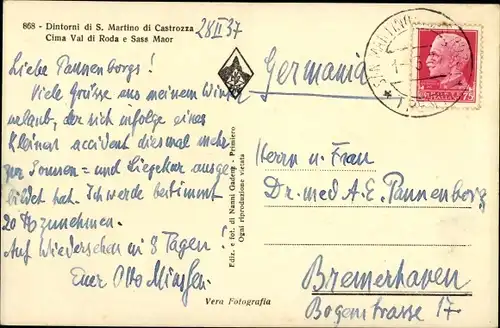 868 - Dintorni di S. Martino di Castrozza
Cima Val di Roda e Sass Maor
28 II 37
Liebe Pannenborgs!
Viele Grüsse aus meinem Winter-
urlaub, der sich infolge eines
kleinen accident diesmal mehr
zur Sonnen= und Liegekur ausge
bildet hat. Ich werde bestimmt
20 ℔ zunehmen.
Auf Wiedersehen in 8 Tagen!
Euer Otto
Vera Fotografia
Ediz. e fot. di Nanni Gadenz - Primiero
Ogni riproduzione vietata
Germania
Herrn u. Frau
Dr. med A. E. Pannenborg
Bremerhaven
Bogenstrasse 17